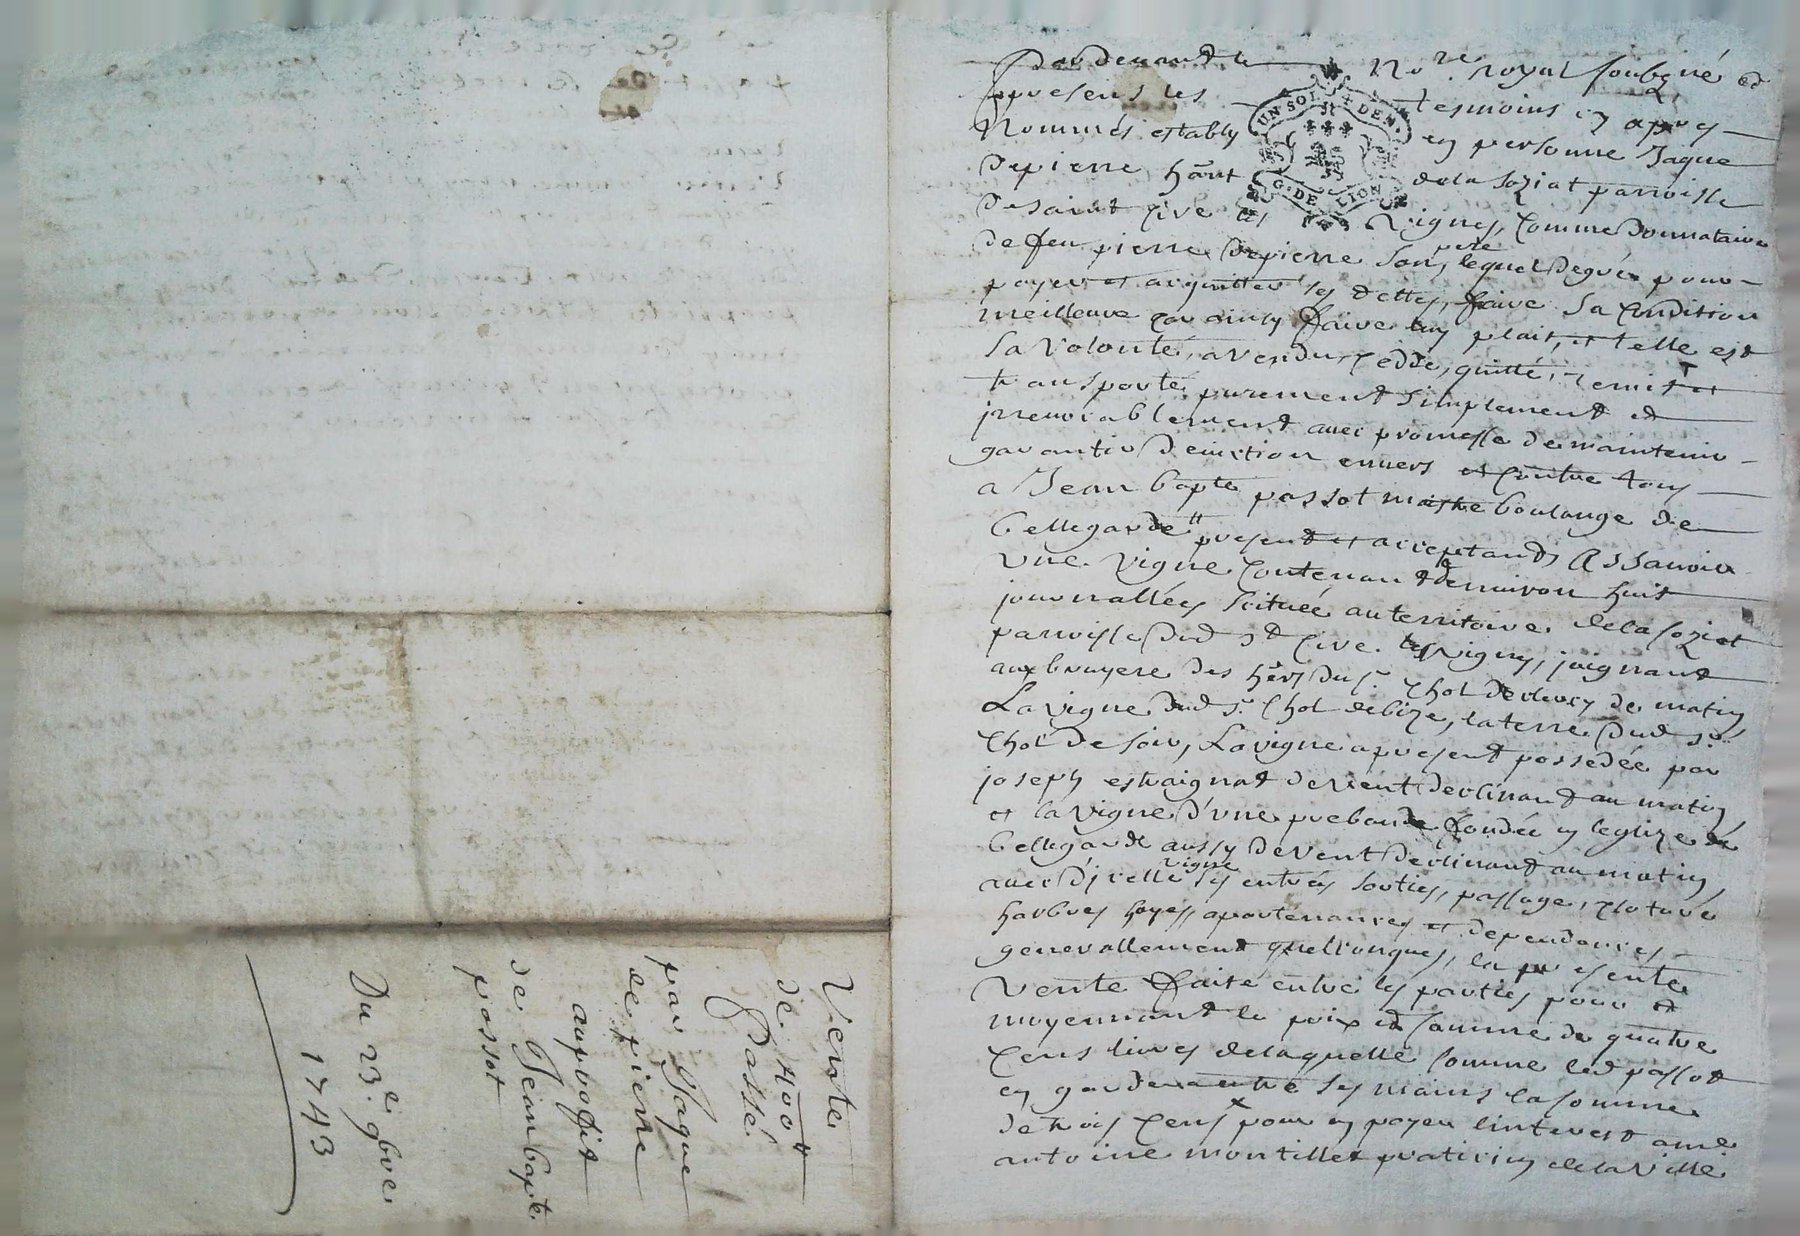 Vente
de 400 ₶
Passé
par Jaque
de pierre
au proffit
de Jean bapte
passot
Du 23e 9bre
1743
Pardevant le No.re royal soubzné et
presens les tesmoins cy apres
Nommés estably en personne Jaque
Depierre hāut de la soziat parroisse
De saint Cire les Vignes, Comme Donnataire
de feu pierre Depierre son pere, lequel De gré pour
payer et aiquitter ses dettes, faire sa Condition
meilleure Car ainsy faire luy plait, et telle est
sa Volonté, a vendu, Cedde, quitté, remit et
transporté purement simplement et
jrrevocablement avec promesse de maintenir
garantir D'eviction envers et Contre tous
a Jean bapte passot maistre boulange de
bellegarde present et acceptant, Assavoir
une Vigne Contenant D'environ huit
journallées scituée au territoire de la soziat
parroisse Dud st Cire les Vignes, joignant
aux bruyere des hērs du sr. Chol de matin
La Vigne dud sr. Chol de bize, la terre dud sr.
Chol De soir, La vigne a present possedée par
joseph estraignat de Vent declinant au matin,
et la vigne d'une prebande fondée en leglize de
bellegarde aussy de Vent declinant au matin,
avec D'jcelle vigne ses entrées sorties, passage, cloture
harbres hayes, apartenances et dependances
generallement quelconques, la presente
Vente faite entre les parties pour et
moyennant le prix et somme de quatre
Cens livres de laquelle somme led passot
en garde entre ses mains la somme
de trois Cens pour en payer linterest a me
antoine montillet praticien de la Ville
UN SOL 4 DEN.
G. DE LION